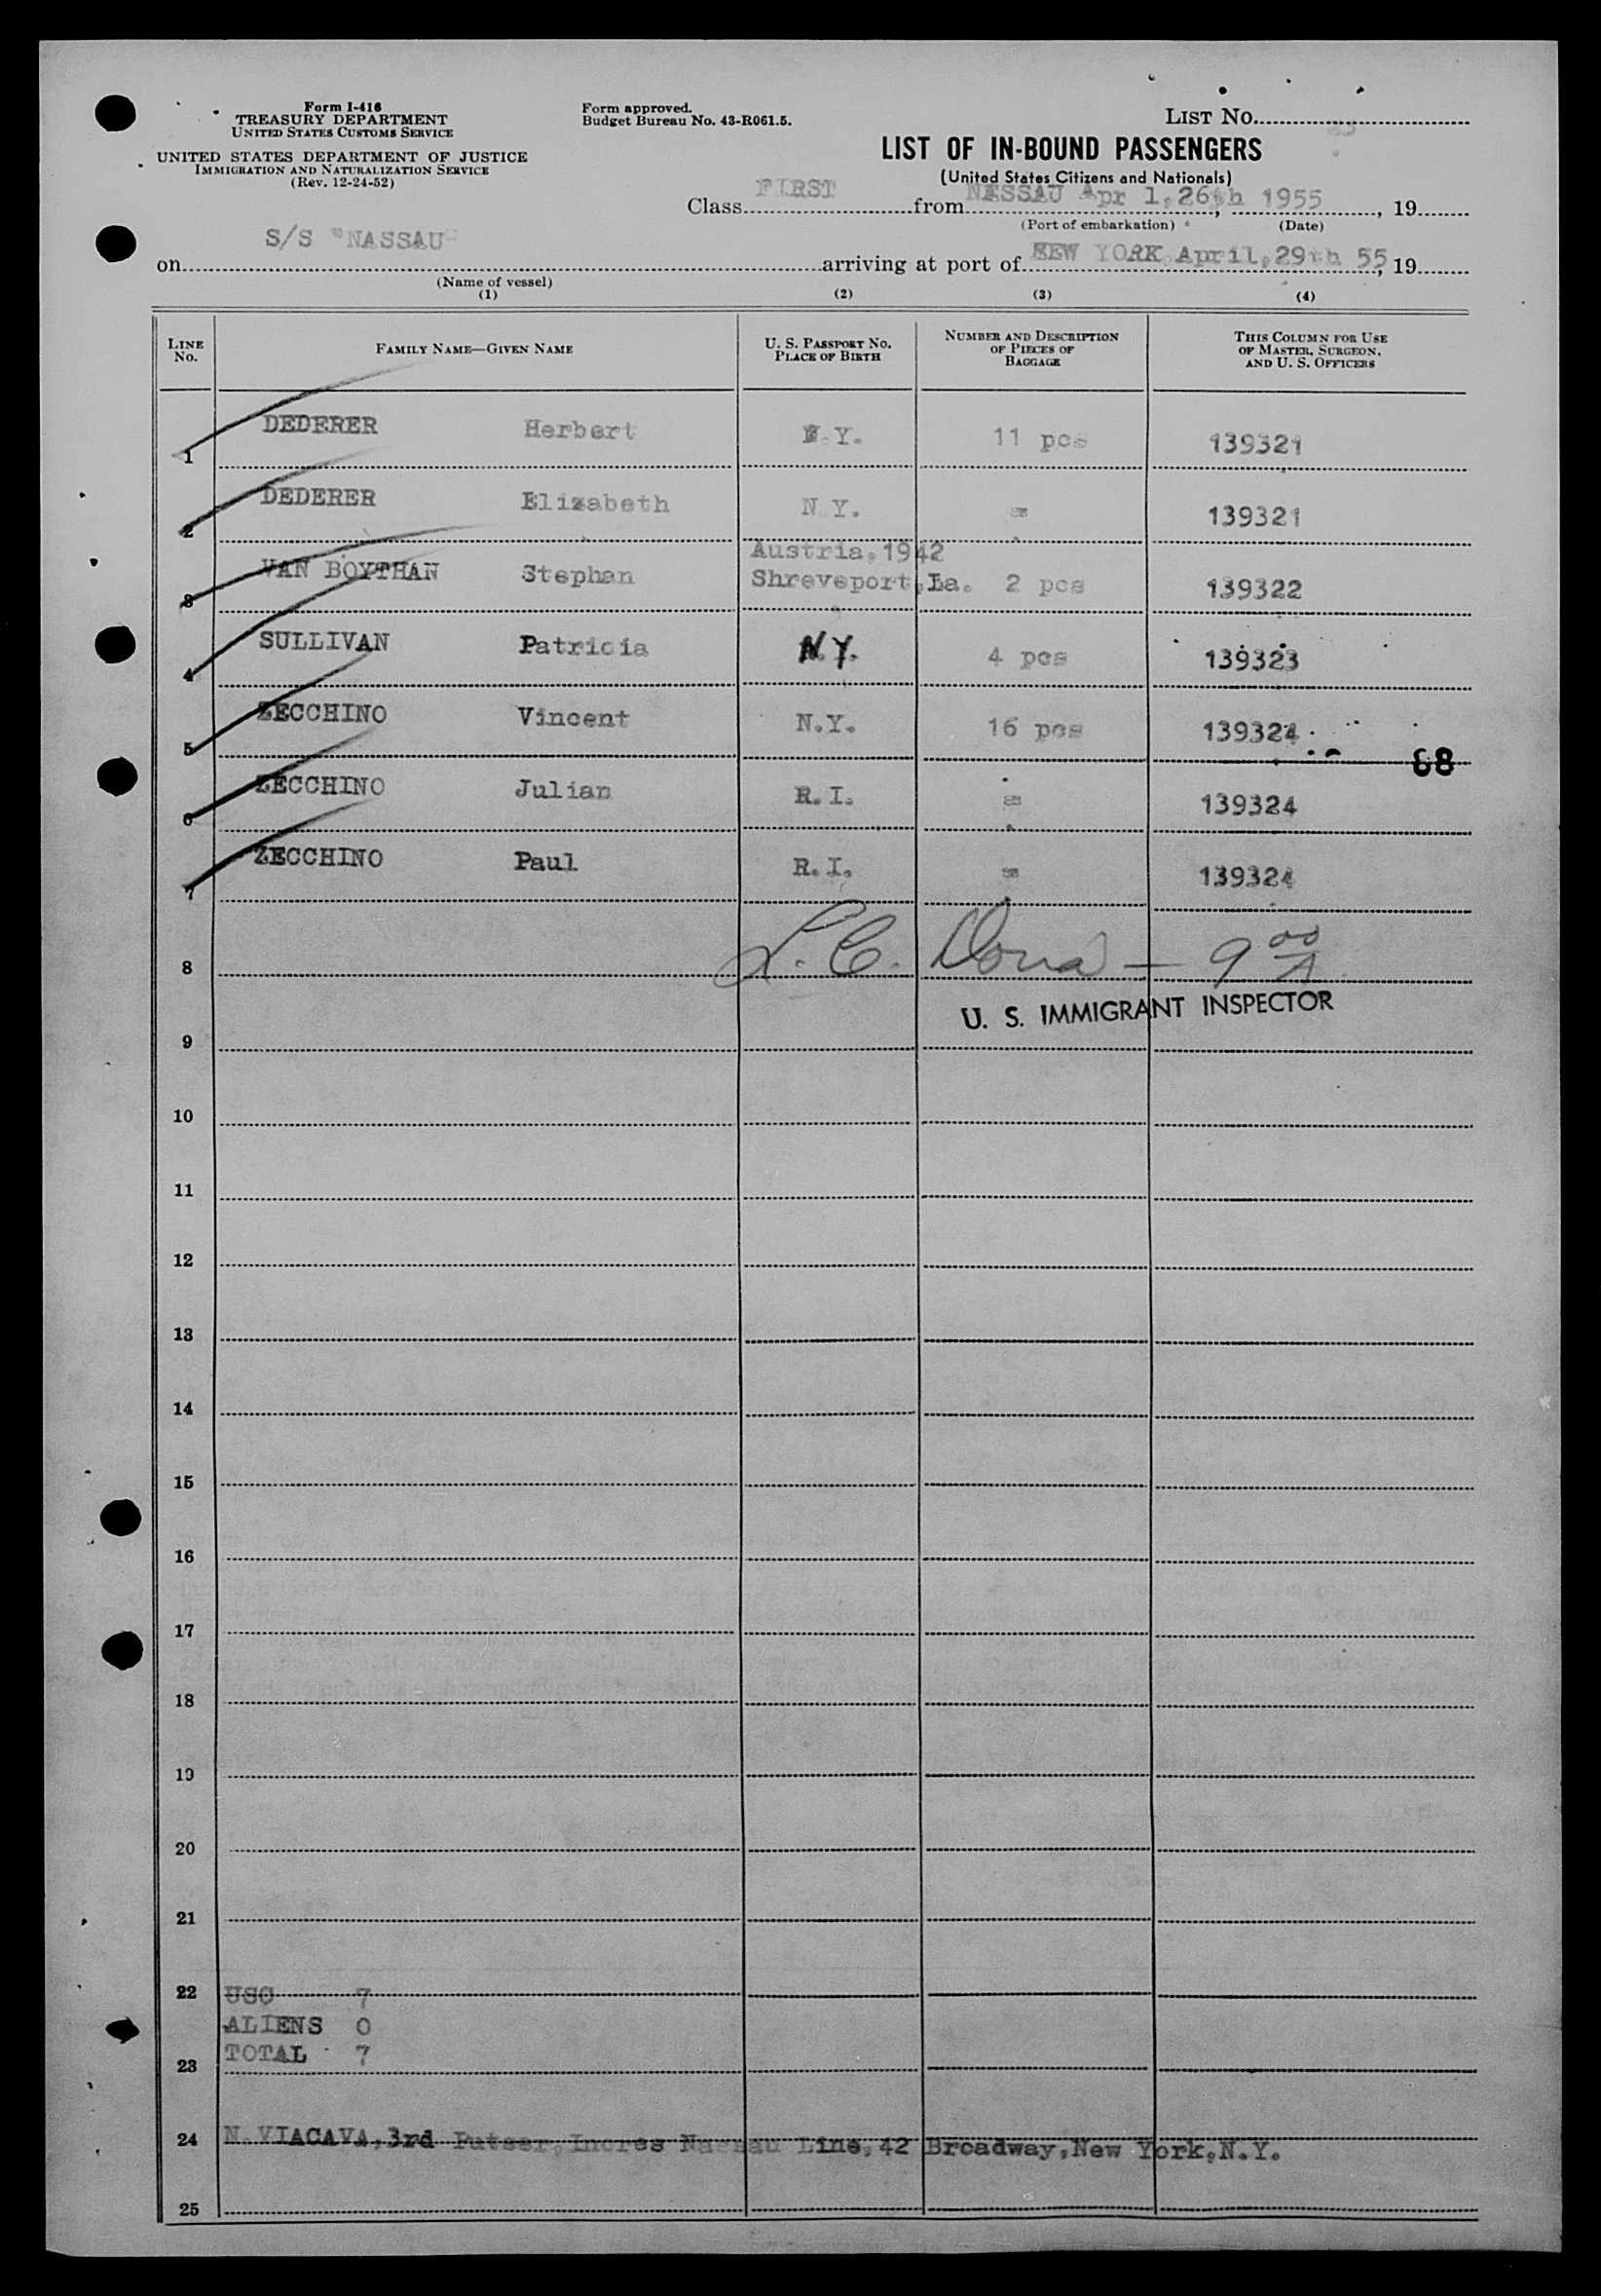 Form I-416
TREASURY DEPARTMENT
UNITED STATES CUSTOMS SERVICE
UNITED STATES DEPARTMENT OF JUSTICE
IMMIGRATION AND NATURALIZATION SERVICE
(Rev. 12-24-52)
Form approved.
Budget Bureau No. 43-R061.5.
LIST No.
LIST OF IN-BOUND PASSENGERS
(United States Citizens and Nationals)
Class FIRST from NASSAU Apr l,26th 1955, 19
(Port of embarkation) (Date)
on S/S "NASSAU" arriving at port of NEW YORK April,29th 55, 19
(Name of vessel)
(1) (2) (3) (4)
LINE No. FAMILY NAME—GIVEN NAME U. S. PASSPORT NO. PLACE OF BIRTH NUMBER AND DESCRIPTION OF PIECES OF BAGGAGE THIS COLUMN FOR USE OF MASTER, SURGEON, AND U. S. OFFICERS
1 DEDERER Herbert N.Y. 11 pcs 139321
2 DEDERER Elizabeth N.Y. " 139321
Austria,1942
3 VAN BOYTHAN Stephan Shreveport,La. 2 pcs 139322
4 SULLIVAN Patricia N.Y. 4 pcs 139323
5 ZECCHINO Vincent N.Y. 16 pcs 139324
68
6 ZECCHINO Julian R.I. " 139324
7 ZECCHINO Paul R.I. " 139324
8 L. C. — 9 00 A
U. S. IMMIGRANT INSPECTOR
9
10
11
12
13
14
15
16
17
18
19
20
21
22 USC 7
ALIENS 0
23 TOTAL 7
24 N.VIACAVA,3rd Putser,Incres Nassau Line,42 Broadway,New York,N.Y.
25